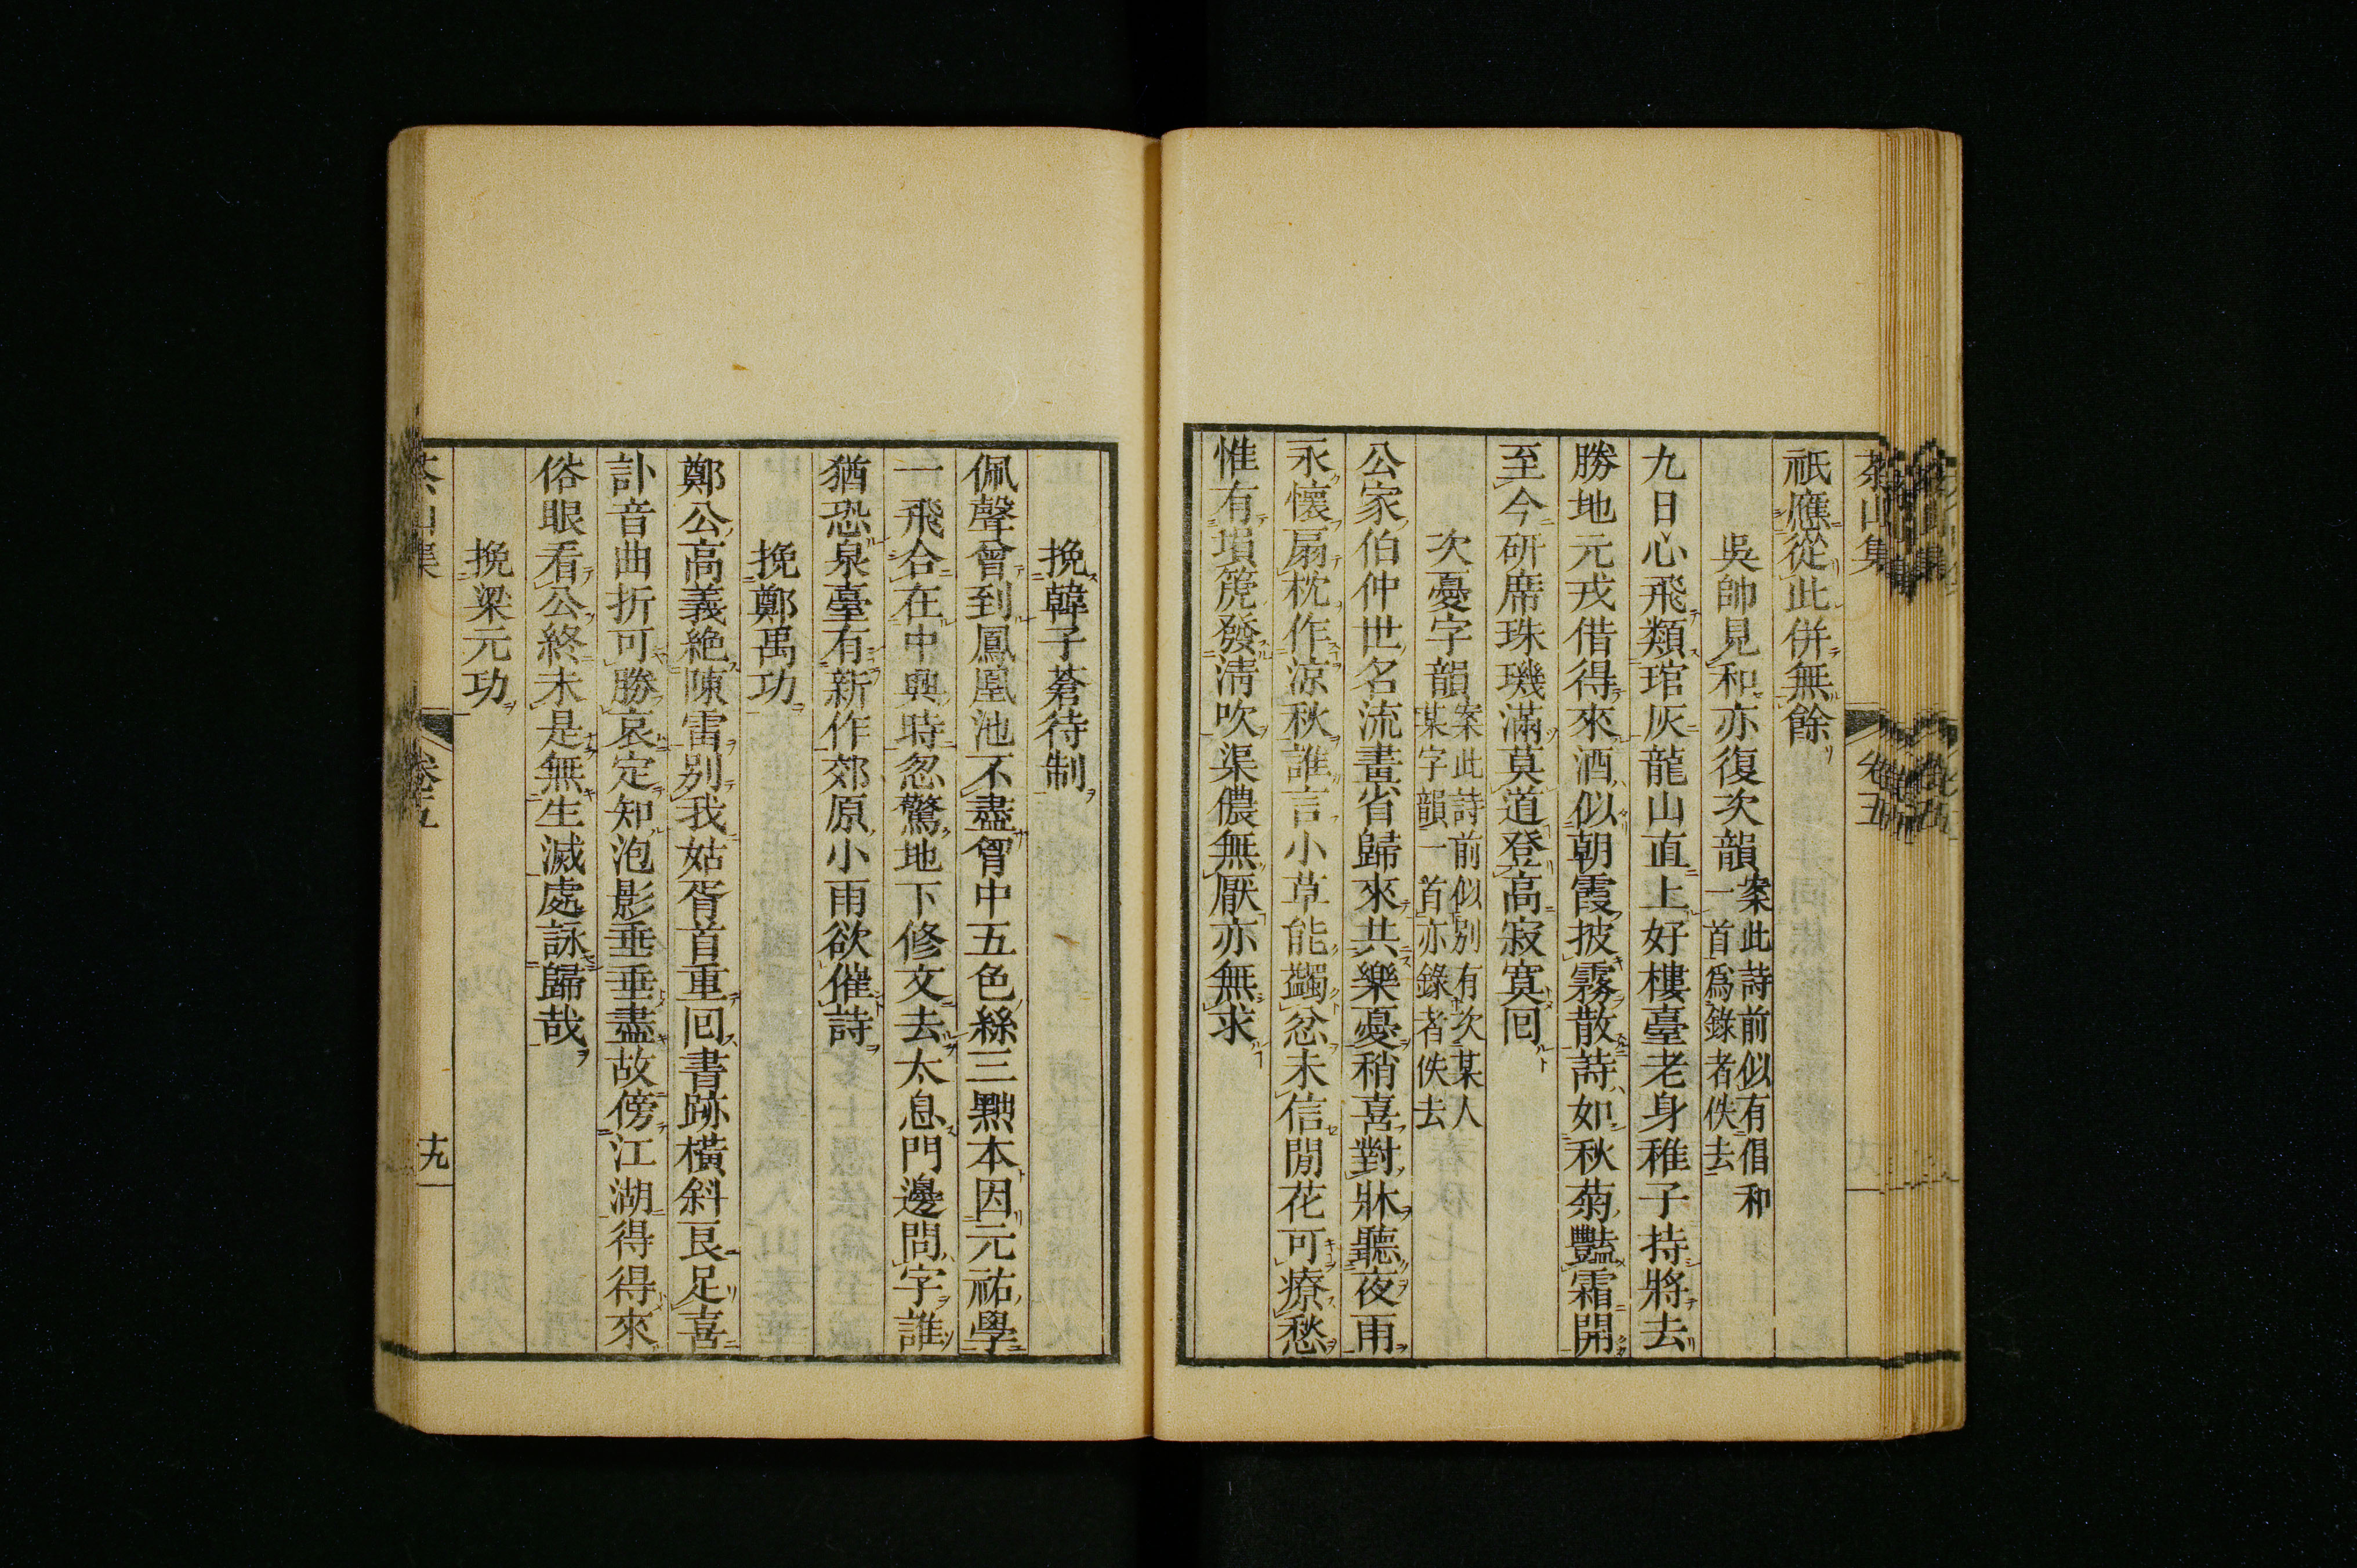 茶山集 卷五
祇應從此併無餘
吳帥見和亦復次韻 案此詩前似有倡和
一首爲錄者佚去
九日心飛類琯灰龍山直上好樓臺老身稚子持將去
勝地元戎借得來酒似朝霞披霧散詩如秋菊豔霜開
至今研席珠璣滿莫道登高寂寞囘
次憂字韻 案此詩前似別有次某人
某字韻一首亦錄者佚去
公家伯仲世名流畫省歸來共樂憂稍喜對牀聽夜雨
永懷扇枕作涼秋誰言小草能蠲忿未信閒花可療愁
惟有塤箎發淸吹渠儂無厭亦無求
挽韓子蒼待制
佩聲曾到鳳凰池不盡胷中五色絲三點本因元祐學
一飛合在中興時忽驚地下修文去太息門邊問字誰
猶恐泉臺有新作郊原小雨欲催詩
挽鄭禹功
鄭公高義絶陳雷別我姑胥首重囘書跡橫斜良足喜
訃音曲折可勝哀定知泡影垂垂盡故傍江湖得得來
俗眼看公終未是無生滅處詠歸哉
挽梁元功
茶山集 卷五 十九